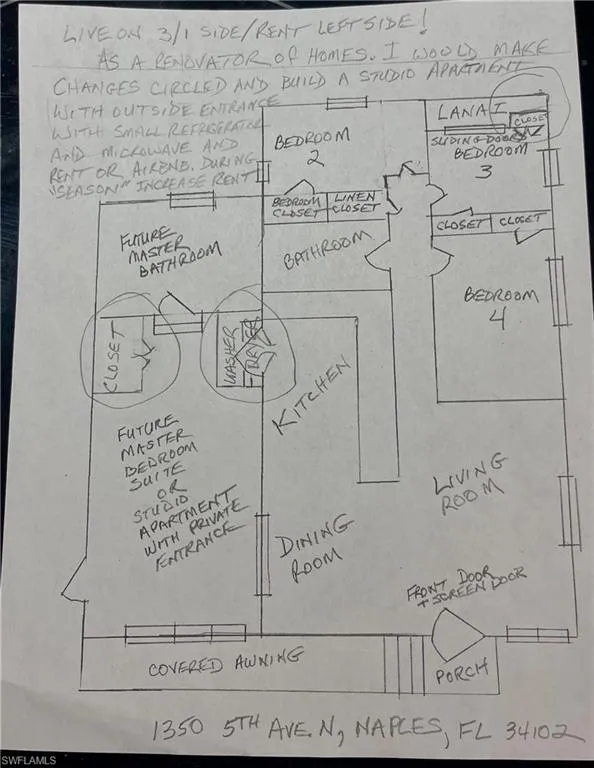 LIVE ON 3/1 SIDE/RENT LEFT SIDE!
AS A RENOVATOR OF HOMES. I WOULD MAKE
CHANGES CIRCLED AND BUILD A STUDIO APARTMENT
WITH OUTSIDE ENTRANCE
WITH SMALL REFRIGERATOR
AND MICROWAVE AND
RENT OR AIRBNB. DURING
"SEASON" INCREASE RENT
LANAI
CLOSET
SLIDING DOORS
BEDROOM
3
BEDROOM
2
BEDROOM
CLOSET
LINEN
CLOSET
CLOSET
CLOSET
FUTURE
MASTER
BATHROOM
BATHROOM
BEDROOM
4
CLOSET
WASHER
DRYER
KITCHEN
FUTURE
MASTER
BEDROOM
SUITE
OR
STUDIO
APARTMENT
WITH PRIVATE
ENTRANCE
LIVING
ROOM
DINING
ROOM
FRONT DOOR
+ SCREEN DOOR
COVERED AWNING
PORCH
1350 5TH AVE. N, NAPLES, FL 34102
SWFLAMLS